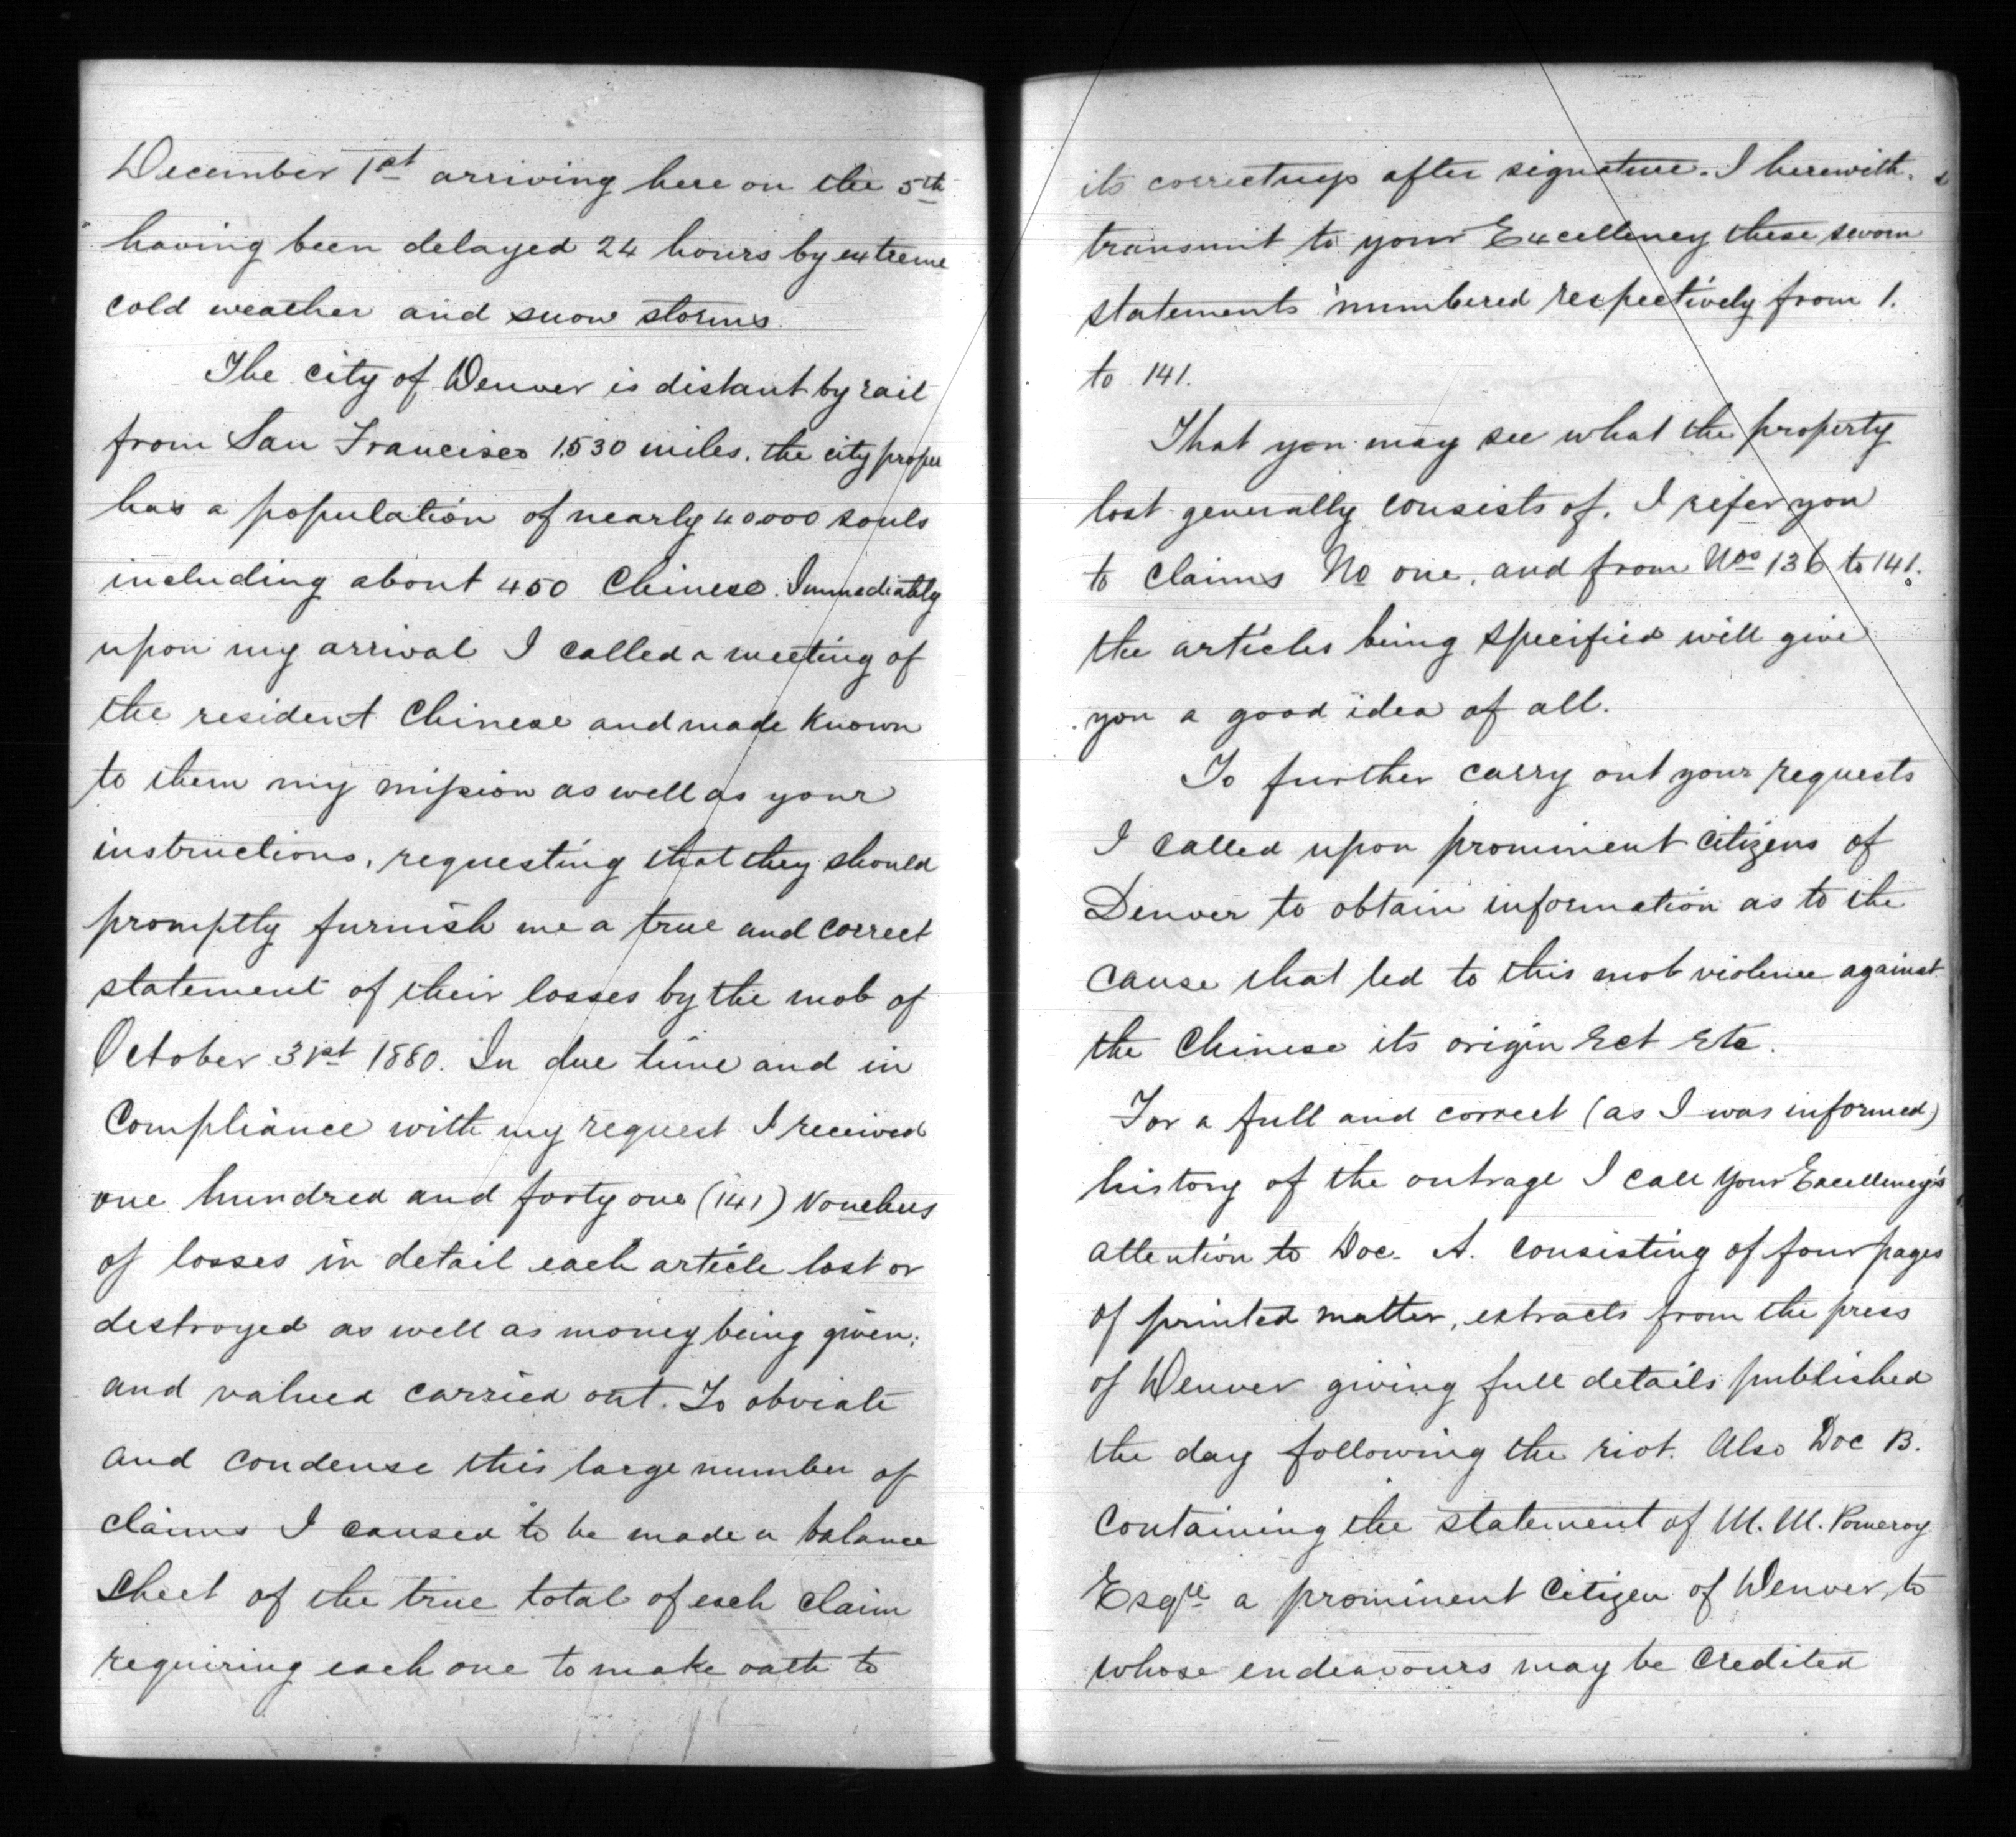 December 1st arriving here on the 5th
having been delayed 24 hours by extreme
cold weather and snow storms.
The city of Denver is distant by rail
from San Francisco 1,530 miles. the city proper
has a population of nearly 40000 souls
including about 450 Chinese. Immediately
upon my arrival I called a meeting of
the resident Chinese and made known
to them my mission as well as your
instructions, requesting that they should
promptly furnish me a true and correct
statement of their losses by the mob of
October 31st 1880. In due time and in
Compliance with my request I received
one hundred and forty one (141) Vouchers
of losses in detail each article lost or
destroyed as well as money being given;
and valued carried out. To obviate
and condense this large number of
claims I caused to be made a balance
Sheet of the true total of each claim
requiring each one to make oath to
its correctness after signature. I herewith.
transmit to your Excellency these sworn
statements numbered respectively from 1.
to 141.
That you may see what the property
lost generally consists of. I refer you
to claims No one, and from Nos 136 to 141.
the articles being specified will give
you a good idea of all.
To further carry out your requests
I called upon prominent citizens of
Denver to obtain information as to the
cause that led to this mob violence against
the Chinese its origin Ect Etc.
For a full and correct (as I was informed)
history of the outrage I call your Excellency's
attention to Doc. A. consisting of four pages
of printed matter, extracts from the press
of Denver giving full details published
the day following the riot. Also Doc B.
Containing the statement of M. M. Pomeroy
Esqre a prominent Citizen of Denver, to
whose endeavours may be credited